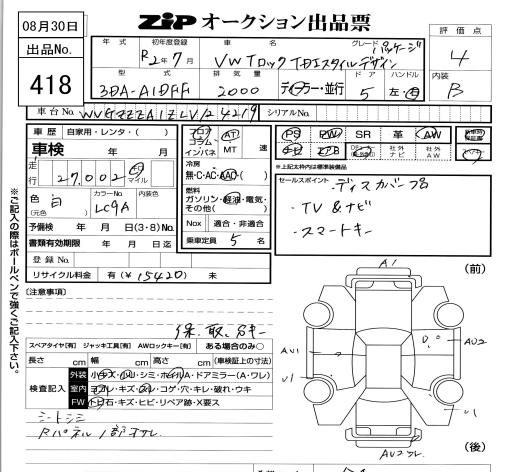 08月30日
ZIP オークション出品票
出品No.
418
年式 初年度登録 車名 グレード パッケージ
R2年7月 VW TロックTDIスタイルデザイン
型式 排気量 ドア ハンドル
3DA-A1DFF 2000 ディーラー・並行 5 左・右
評価点
4
内装
B
車台No. シリアルNo.
車歴 自家用・レンタ・( )
車検 年 月
走行 27,002 km マイル
色 白 カラーNo. 内装色
(元色) LC9A
予備検 年 月 日(3・8)No.
書類有効期限 年 月 日迄
登録No.
リサイクル料金 有(¥15420) 未
フロア コラム インパネ AT MT 速
冷房
無・C・AC・AAC・( )
燃料
ガソリン・軽油・電気・その他( )
Nox 適合・非適合
乗車定員 5 名
PS PW SR 革 AW
ナビ エアB 社外ナビ 社外AW
※上記太枠内は標準装備品
セールスポイント ディスカバープロ
・TV&ナビ
・スマートキー
※ご記入の際はボールペンで強くご記入下さい。
(注意事項)
保、取、スペアキー
スペアタイヤ[有] ジャッキ工具[有] AWロックキー[有] ある場合のみ○
長さ cm 幅 cm 高さ cm (車検証上の寸法)
検査記入
外装 小キズ・凹・シミ・ホイルA・ドアミラー(A・ワレ)
室内 ヨゴレ・キズ・スレ・コゲ・穴・キレ・破れ・ウキ
FW トビ石・キズ・ヒビ・リペア跡・X要ス
シートシミ
Rパネル1部ヨゴレ
(前)
A1
AU1
U1
AU2
U1
AU2ワレ
(後)